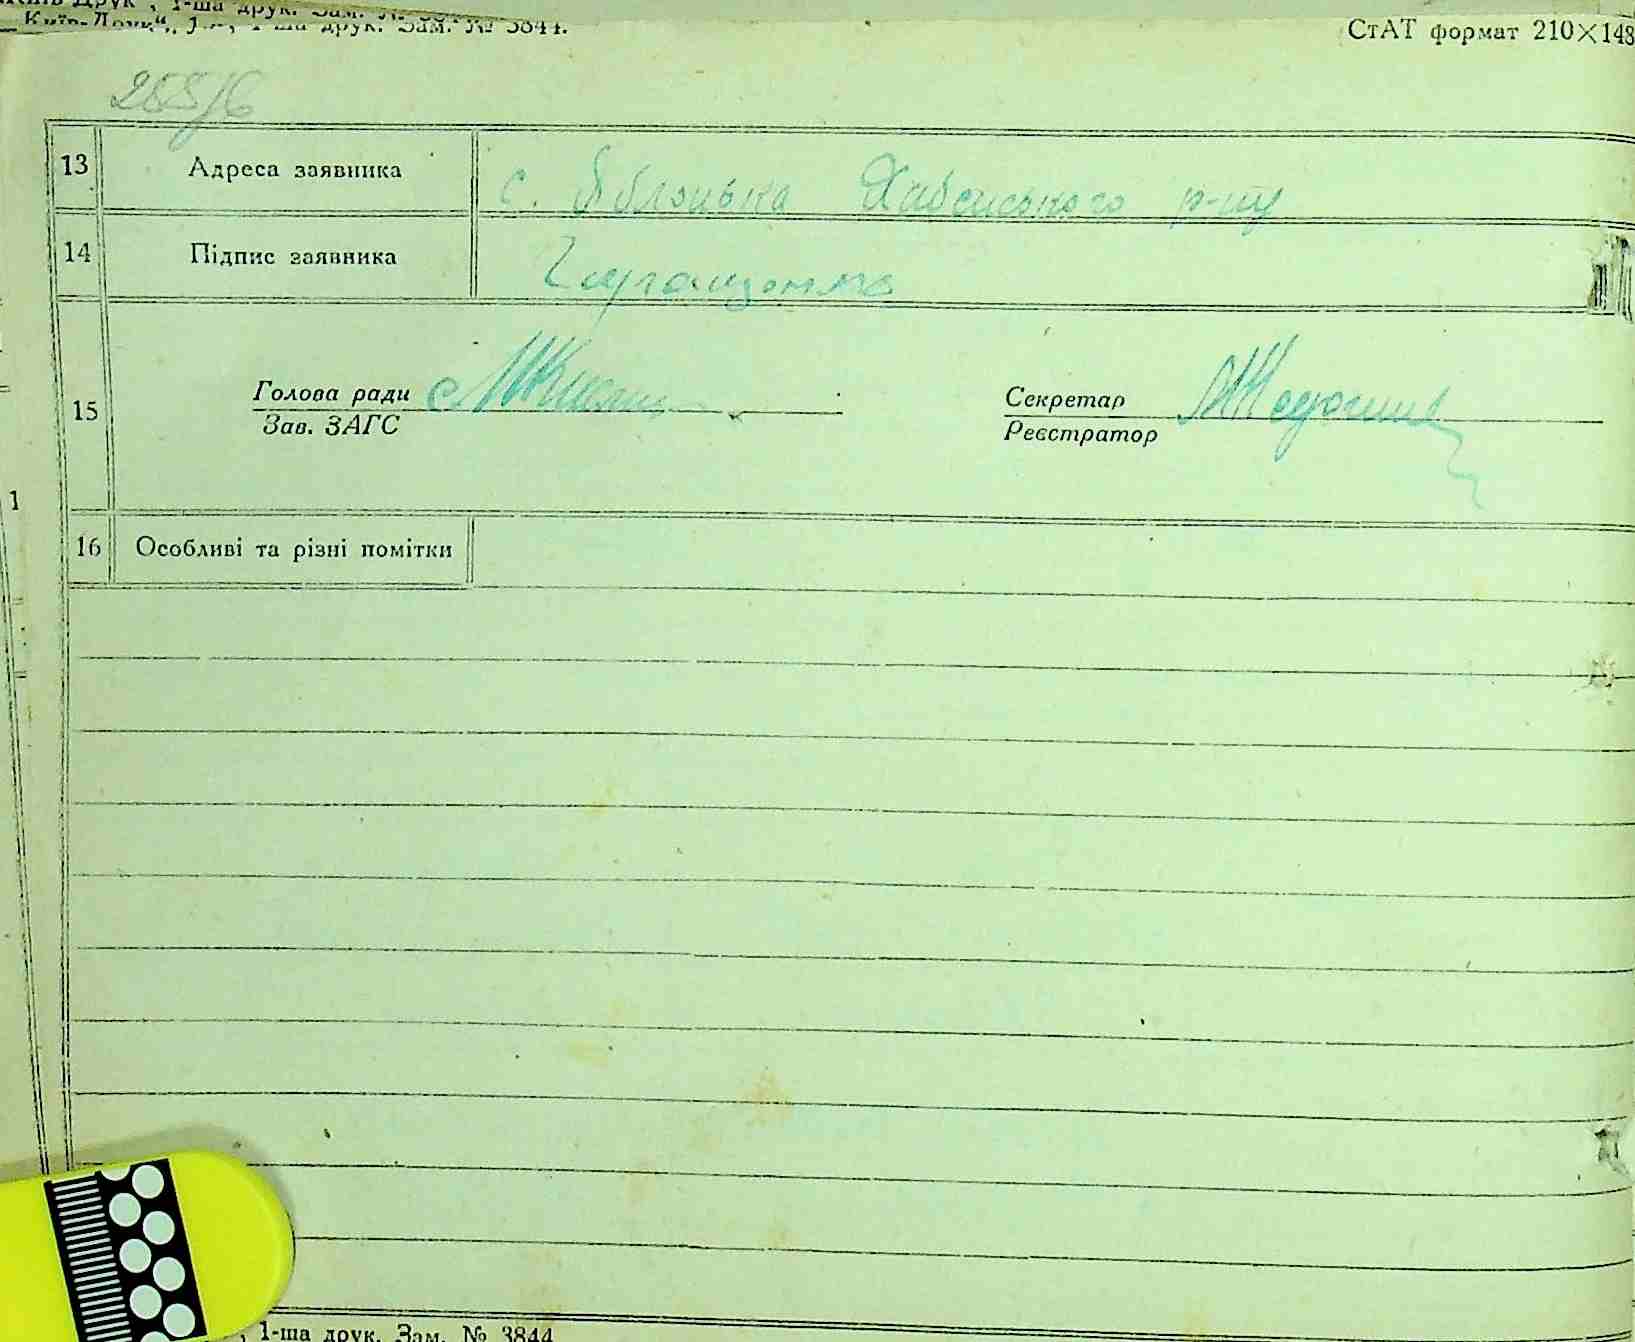 Київ-Друк", 1-ша друк. Зам. № 3844.
СтАТ формат 210×148
13 Адреса заявника с. Яблонька Хабенського р-ну
14 Підпис заявника
15 Голова ради
Зав. ЗАГС
Секретар
Реєстратор
16 Особливі та різні помітки
1
1-ша друк. Зам. № 3844